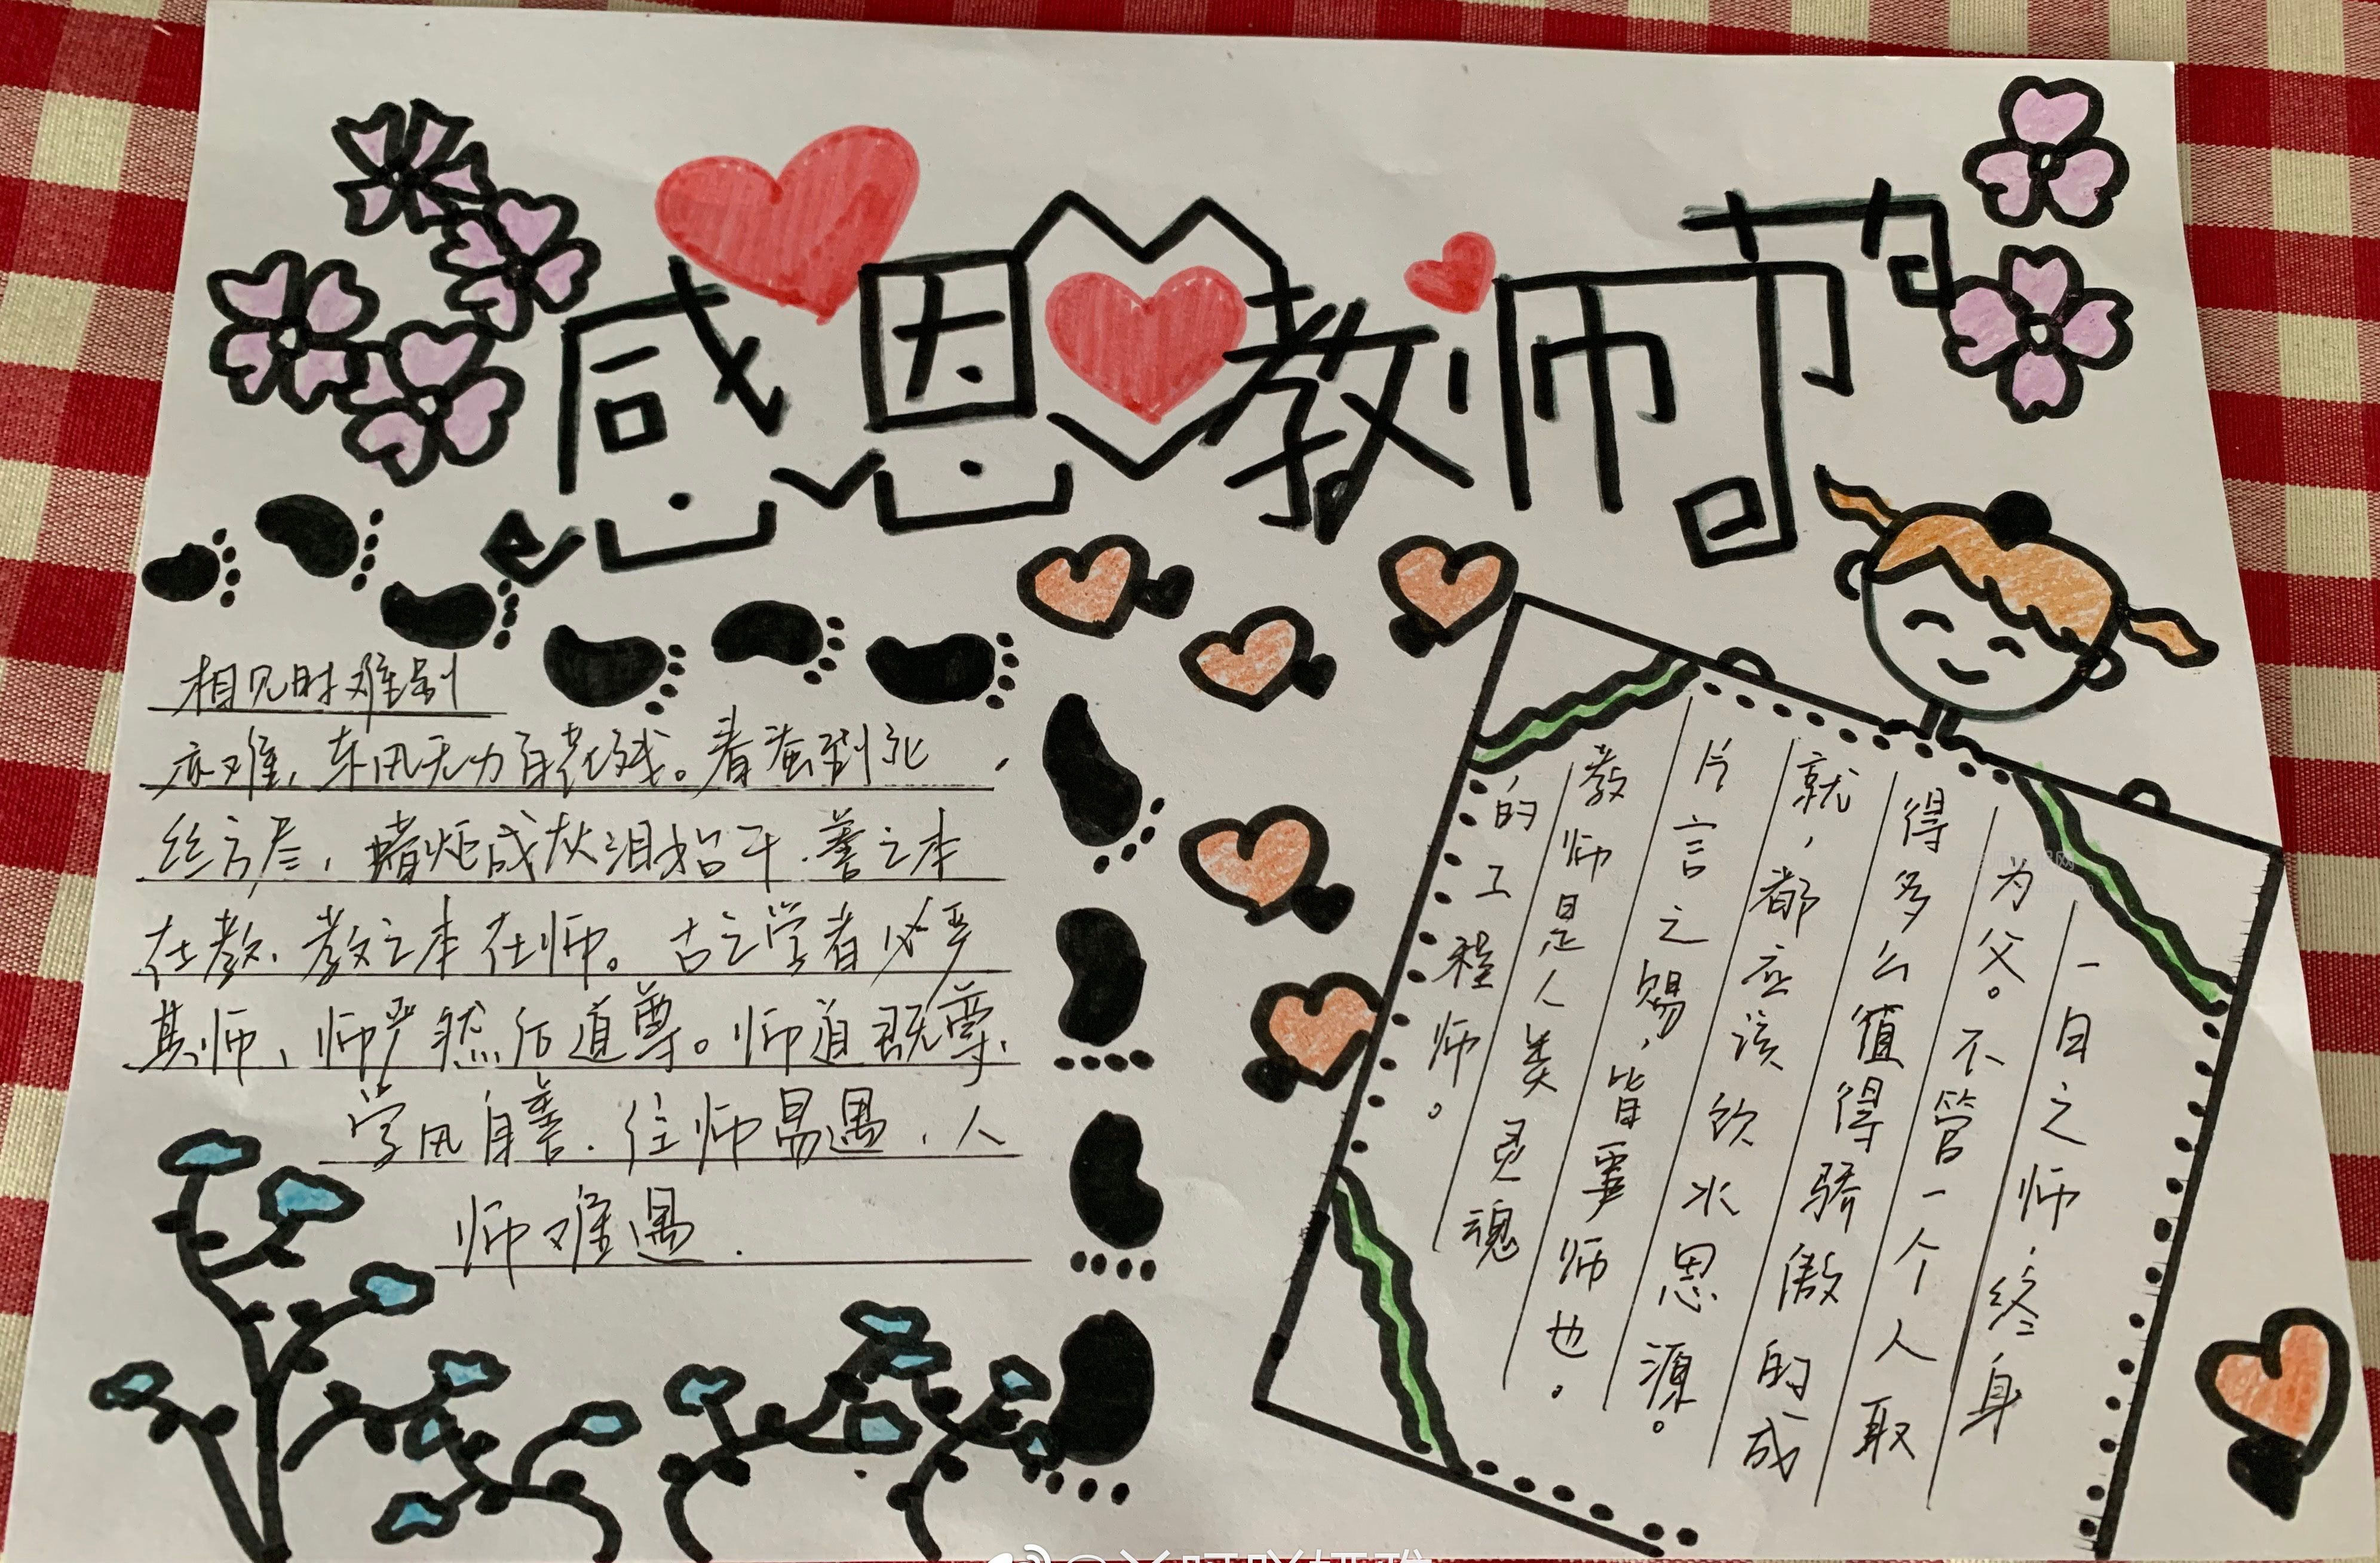 感恩教师节
相见时难别
亦难,东风无力百花残。春蚕到死
丝方尽,蜡炬成灰泪始干.善之本
在教,教之本在师。古之学者必严
其师,师严然后道尊。师道既尊,
学风自善.任师易遇,人
师难遇.
一日之师,终身
为父。不管一个人取
得多么值得骄傲的成
就,都应该饮水思源。
片言之赐,皆事师也。
教师是人类灵魂
的工程师。